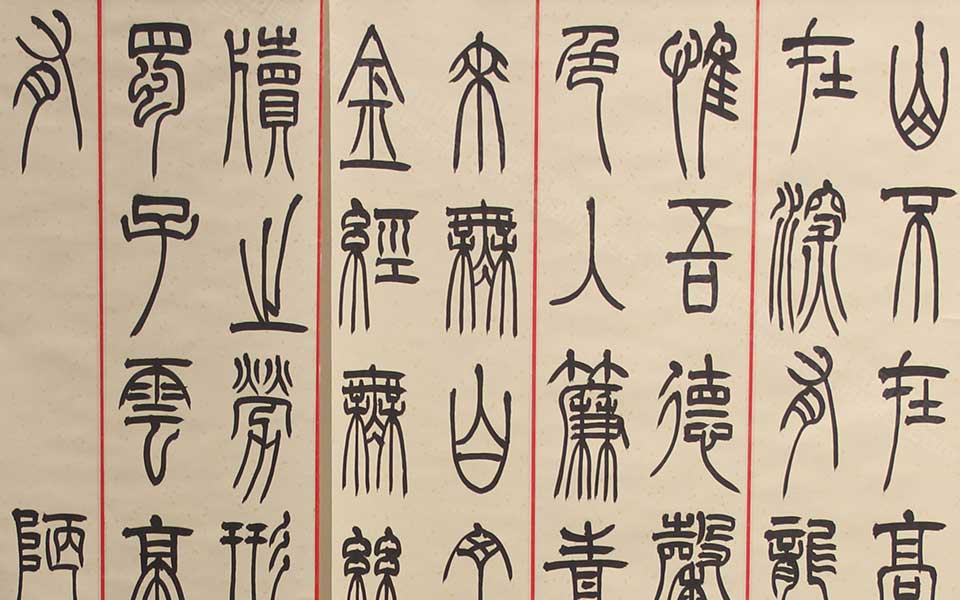 山不在高
在深有龍
惟吾德馨
色入簾青
來無白丁
金經無絲
牘之勞形
蜀子雲亭
有 陋